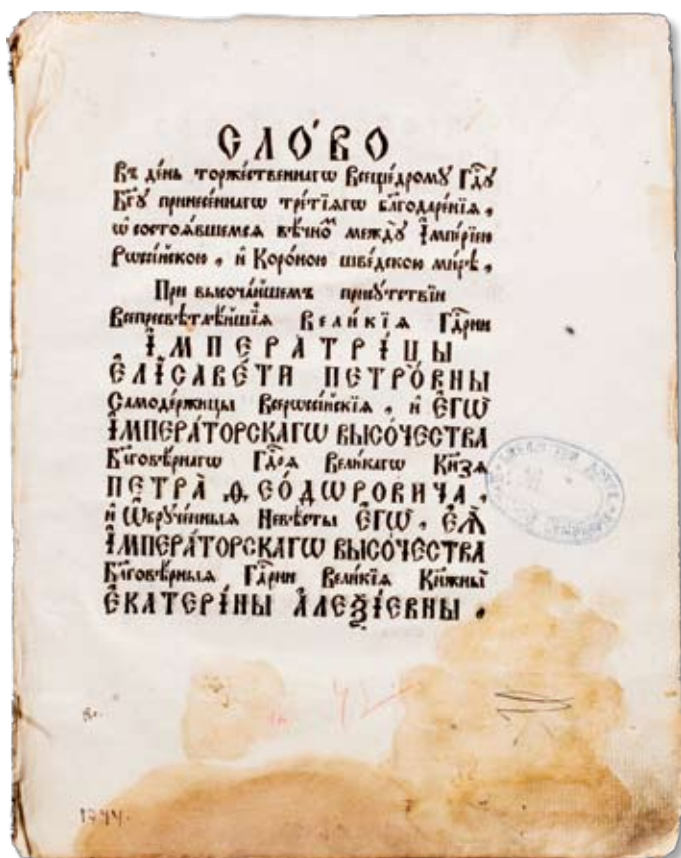 СЛО́ВО
Въ де́нь торже́ственнагѡ Всеще́дромꙋ Гдⷭ҇ꙋ
Бг҃ꙋ принесе́ннагѡ тре́тїѧгѡ бл҃годаре́нїѧ,
ѡ состоѧ́вшемсѧ вѣ́чноⷨ междꙋ̀ І҆мпе́рїею
Рѡссі́йскою, и҆ Коро́ною шве́дскою ми́рѣ,
При высоча́йшемъ прису́тствїи
Всепресвѣтлѣ́йшїѧ Вели́кїѧ Гдⷭ҇рни
І҆МПЕРАТРІ́ЦЫ
Е҆ЛІСАВЕ́ТИ ПЕТРО́ВНЫ
Самоде́ржицы Всерѡссі́йскїѧ, и҆ Е҆ГѠ̀
І҆МПЕРА́ТОРСКАГѠ ВЫСО́ЧЕСТВА
Бл҃говѣ́рнагѡ Гдⷭ҇рѧ Вели́кагѡ Кн҃зѧ
ПЕТРА̀ Ѳ҆ЕО́ДѠРОВИЧА,
и҆ Ѡ҆брꙋче́нныѧ Невѣ́сты Е҆ГѠ̀, Е҆Ѧ̀
І҆МПЕРА́ТОРСКАГѠ ВЫСО́ЧЕСТВА
Бл҃говѣ́рныѧ Гдⷭ҇рни Вели́кїѧ Кнѧжны̀
Е҆КАТЕРІ́НЫ А҆ЛЕѮІ́ЕВНЫ.
1744.